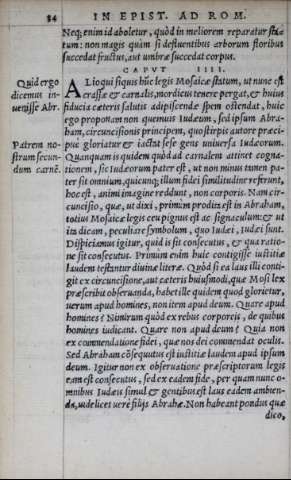 84 IN EPIST. AD ROM.
Neq; enim id aboletur, quòd in meliorem reparatur sta
tum: non magis quàm si defluentibus arborum floribus
succedat fructus, aut umbræ succedat corpus.
CAPUT IIII.
Quid ergo
dicemus in-
uenisse Abr.
Patrem no-
strum secun-
dum carnē.
ALioqui siquis hūc legis Mosaicæ statum, ut nunc est
crassæ & carnalis, mordicus tenere pergat, & huius
fiducia cæteris salutis adipiscendæ spem ostendat, huic
ego proponam non quemuis Iudæum, sed ipsum Abra-
ham, circuncisionis principem, quo stirpis autore præci-
puè gloriatur & iactat sese gens uniuersa Iudæorum.
Quanquam is quidem quòd ad carnalem attinet cogna-
tionem, sic Iudæorum pater est, ut non minus tamen pa-
ter sit omnium, quicunq; illum fidei similitudine referunt,
hoc est, animi imagine reddunt, non corporis. Nam cir-
cuncisio, quæ, ut dixi, primùm prodita est in Abraham,
totius Mosaicæ legis ceu pignus est ac signaculum: & ut
ita dicam, peculiare symbolum, quo Iudæi, Iudæi sunt.
Dispiciamus igitur, quid is sit consecutus, & qua ratio-
ne sit consecutus. Primùm enim huic contigisse iustitiæ
laudem testantur diuinæ literæ. Quòd si ea laus illi conti-
git ex circuncisione, aut cæteris huiusmodi, quæ Mosi lex
præscribit obseruanda, habet ille quidem quod glorietur,
uerum apud homines, non item apud deum. Quare apud
homines? Nimirum quòd ex rebus corporeis, de quibus
homines iudicant. Quare non apud deum? Quia non
ex commendatione fidei, quæ nos dei commendat oculis.
Sed Abraham cōsequutus est iustitiæ laudem apud ipsum
deum. Igitur non ex obseruatione præscriptorum legis
eam est consecutus, sed ex eadem fide, per quam nunc o-
mnibus Iudæis simul & gentibus est laus eadem ambien-
da, uidelicet ueré filijs Abrahæ. Non habeant pondus quæ
dico,